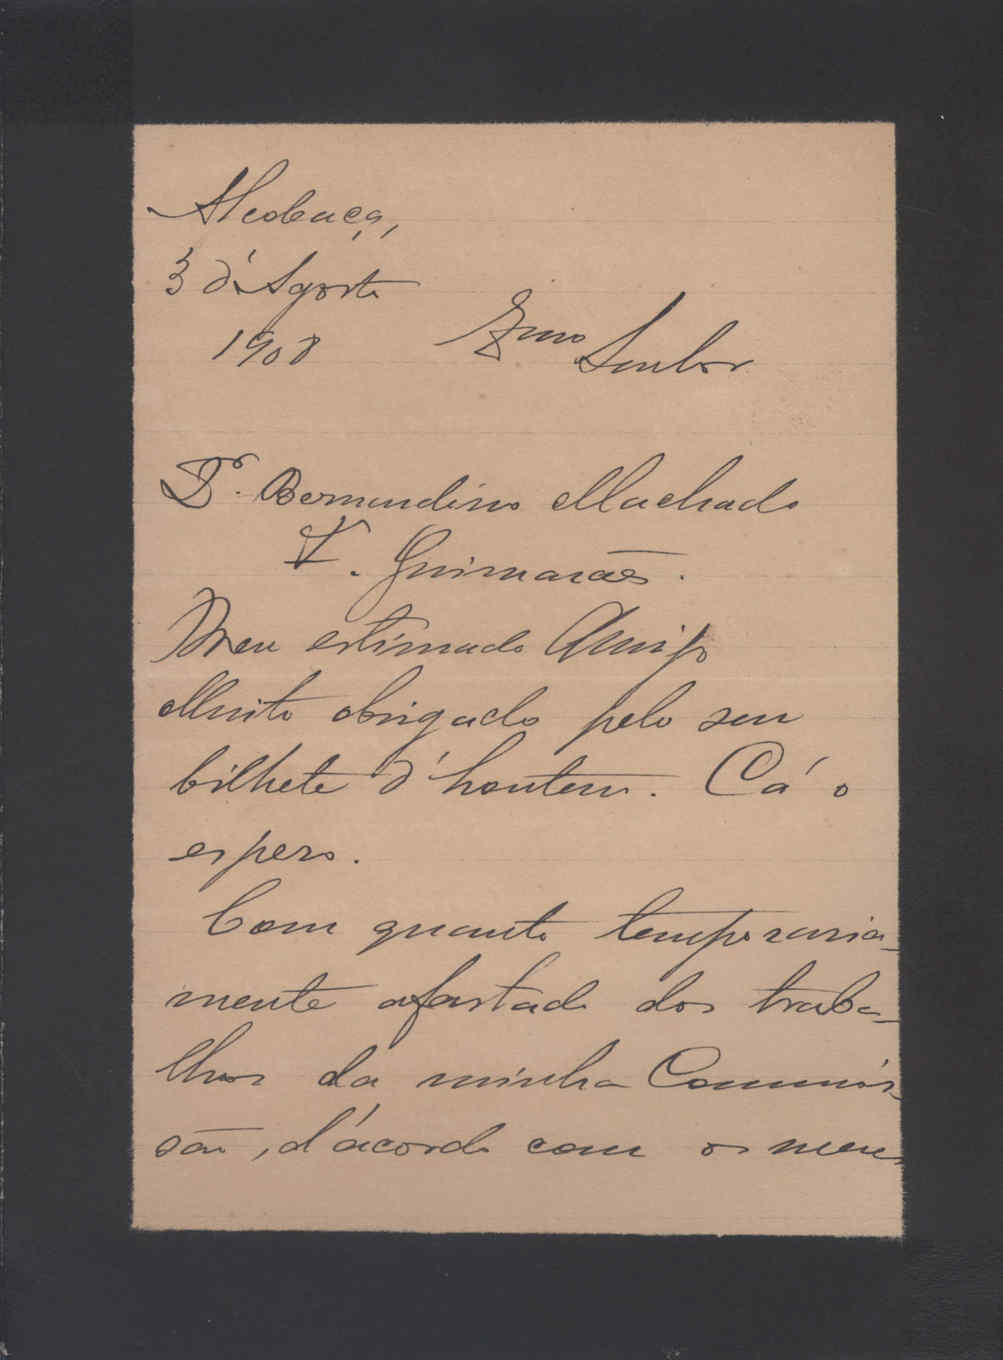 Alcobaça,
3 d'Agosto
1908
Exmo Senhor
Dr. Bernardino Machado
V. Guimarães.
Meu estimado Amigo
Muito obrigado pelo seu
bilhete d'hontem. Cá o
espero.
Com quanto temporaria-
mente afastado dos traba-
lhos da minha Commis-
são, d'acordo com os meus